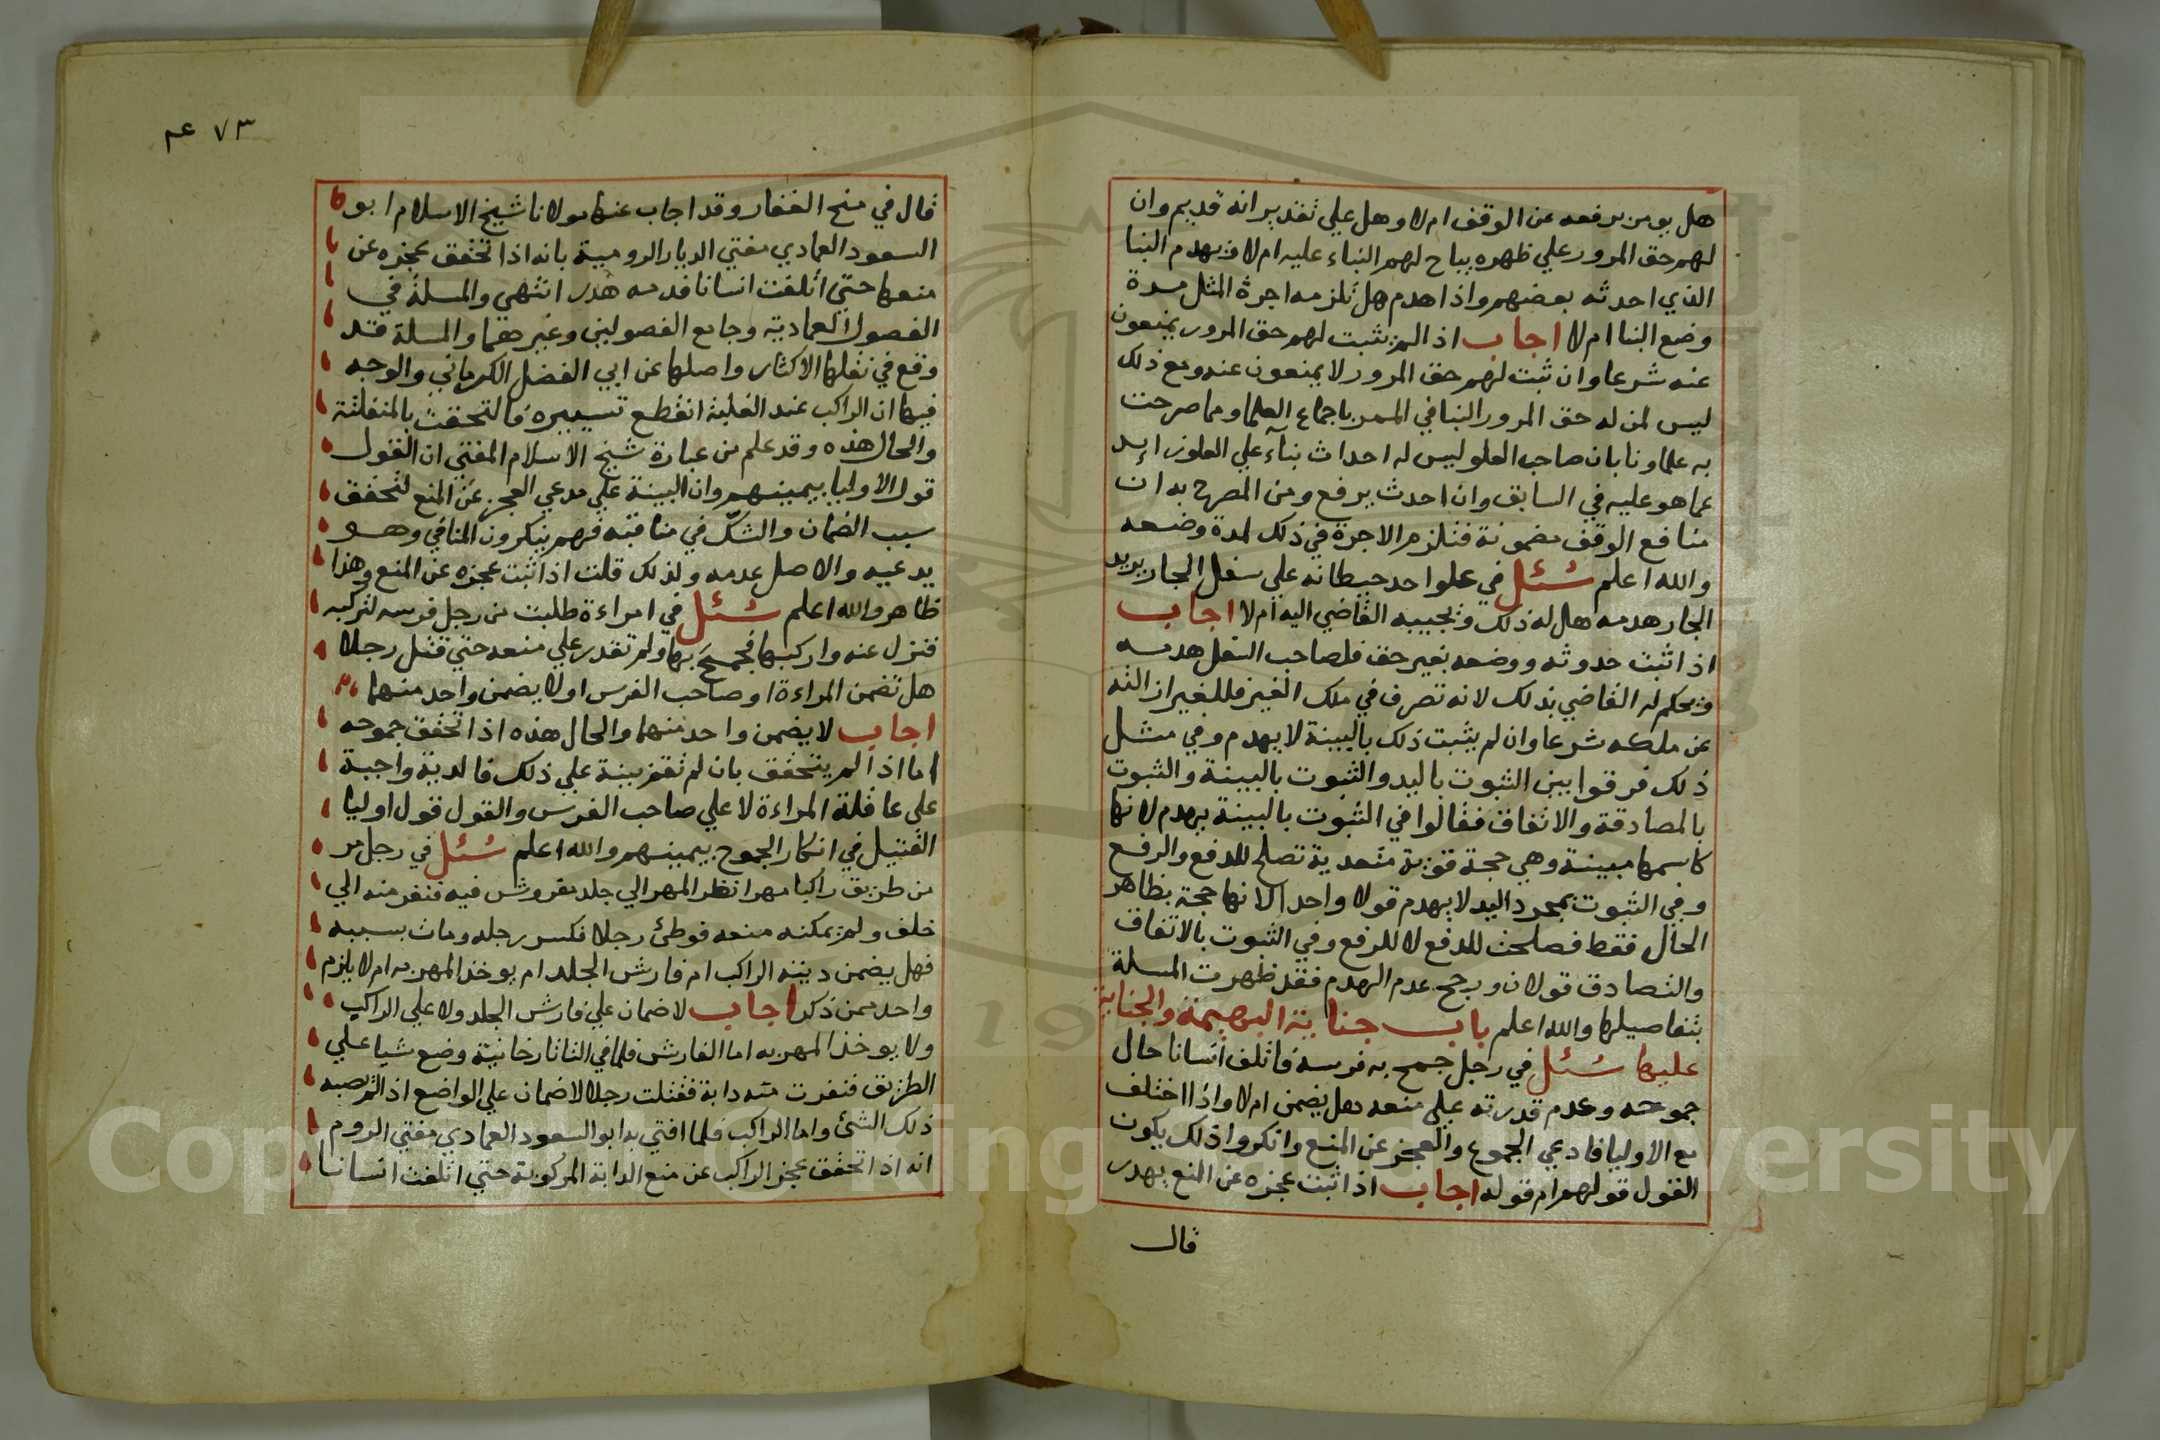 هل يومر برفعه عن الوقف ام لا وهل علي تقدير انه قديم وان
لهم حق المرور علي ظهره يباح لهم البناء عليه ام لا فيهدم البنا
الذي احدثه بعضهم واذا هدم هل تلزمه اجرة المثل مدة
وضع البنا ام لا اجاب اذا لم يثبت لهم حق المرور يمنعون
عنه شرعا وان ثبت لهم حق المرور لا يمنعون عنه ومع ذلك
ليس لمن له حق المرور البنا في الممر باجماع العلما ومما صرحت
به علماونا بان صاحب العلو ليس له احداث بناء علي العلو زايد
عما هو عليه في السابق وان احدث يرفع ومن المصرح به ان
منافع الوقف مضمونة فتلزم الاجرة في ذلك لمدة وضعه
والله اعلم سئل في علو احد حيطانه علي سفل الجار يريد
الجار هدمه هل له ذلك ويجيبه القاضي اليه ام لا اجاب
اذا ثبت حدوثه ووضعه بغير حق فلصاحب السفل هدمه
ويحكم له القاضي بذلك لانه تصرف في ملك الغير فللغير ازالته
عن ملكه شرعا وان لم يثبت ذلك بالبينة لا يهدم وفي مثل
ذلك فرقوا بين الثبوت باليد والثبوت بالبينة والثبوت
بالمصادقة والاتفاق فقالوا في الثبوت بالبينة يهدم لانها
كاسمها مبينة وهي حجة قوية متعدية تصلح للدفع والرفع
وفي الثبوت بمجرد اليد لا يهدم قولا واحدا لانها حجة بظاهر
الحال فقط فصلحت للدفع لا للرفع وفي الثبوت بالاتفاق
والتصادق قولان ورجح عدم الهدم فقد ظهرت المسلة
بتفاصيلها والله اعلم باب جناية البهيمة والجناية
عليها سئل في رجل جمح به فرسه فاتلف انسانا حال
جموحه وعدم قدرته علي منعه هل يضمن ام لا واذا اختلف
مع الاوليا فادعي الجموح والعجز عن المنع وانكروا ذلك يكون
القول قولهم ام قوله اجاب اذا ثبت عجزه عن المنع يهدر
قال
٧٣ عم
قال في منح الغفار وقد اجاب عنها مولانا شيخ الاسلام ابو
السعود العمادي مفتي الديار الرومية بانه اذا تحقق عجزه عن
منعها حتي اتلفت انسانا فدمه هدر انتهي والمسلة في
الفصول العمادية وجامع الفصولين وغيرهما والمسلة قد
وقع في نقلها الاكثار واصلها عن ابي الفضل الكرماني والوجه
فيها ان الراكب عند الغلبة انقطع تسييره فالتحقت بالمنفلتة
والحال هذه وقد علم من عبارة شيخ الاسلام المفتي ان القول
قول الاوليا بيمينهم وان البينة علي مدعي العجز عن المنع لتحقق
سبب الضمان والشك في منافيه فهم ينكرون المنافي وهو
يدعيه والاصل عدمه ولذلك قلت اذا ثبت عجزه عن المنع وهذا
ظاهر والله اعلم سئل في امراءة طلبت من رجل فرسه لتركبه
فنزل عنه واركبها فجمح بها ولم تقدر علي منعه حتي قتل رجلا
هل تضمن المراءة او صاحب الفرس او لا يضمن واحد منهما
اجاب لا يضمن واحد منهما والحال هذه اذا تحقق جموحه
اما اذا لم يتحقق بان لم تقم بينة علي ذلك فالدية واجبة
علي عاقلة المراءة لا علي صاحب الفرس والقول قول اوليا
القتيل في انكار الجموح بيمينهم والله اعلم سئل في رجل مر
من طريق راكبا مهرا نظر المهر الي جلد مفروش فيه فنفر منه الي
خلف ولم يمكنه منعه فوطئ رجلا فكسر رجله ومات بسببه
فهل يضمن ديته الراكب ام فارش الجلد ام يوخذ المهر به ام لا يلزم
واحد ممن ذكر اجاب لا ضمان علي فارش الجلد ولا علي الراكب
ولا يوخذ المهر به اما الفارش فلما في التاتارخانية وضع شيا علي
الطريق فنفرت منه دابة فقتلت رجلا لا ضمان علي الواضع اذا لم يصبه
ذلك الشئ واما الراكب فلما افتي به ابو السعود العمادي مفتي الروم
انه اذا تحقق عجز الراكب عن منع الدابة المركوبة حتي اتلفت انسانا